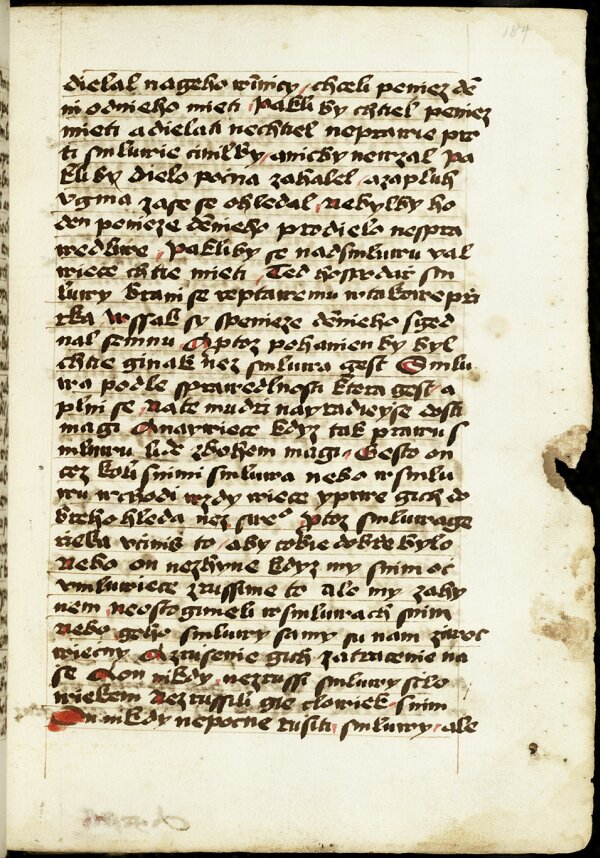 184
dielal nageho winicy, chceli peniez dē
ni odnieho mieti Pakli by chtiel peniez
mieti a dielati nechtiel neprawie pro
ti smluwie cinil by, anicby newzal Pa
kli by dielo pocna zahalel, azapluh
vgma zase se ohledal, nebylby ho
den penieze dēnieho pro dielo nespra
wedliwe, Pakliby se nadsmluwu val
wiece chtie mieti, Ted hospodař sm
luwy brani se reptawemu wtakowe při
rka Wssak sy spenieze dēnieho sged
nal semnu A ptoz pohanien by byl
chtie ginak nez smluwa gest Smlu
wa podle sprawedlnosti ktera gest a
plni se, Nate mudri nayradieyse dosti
magi Anaywiece kdyz tak prawu s
mluwu lide zbohem magi, Gesto on
cez koli snimi smluwa nebo wsmlu
wu wchodi wzdy wiece yprwe gich do
breho hleda nez sweº, ptoz smluwage
rieka vcinis to, aby tobie dobre bylo
Nebo on nezhyne kdyz my snim oc
vmluwiece zrussime to ale my zahy
nem, neosto gimeli wsmluwach snim
nebo geho smluwy samy su nam ziwot
wiecny A zrusenie gich zatracenie na
se A on nikdy, nezrussi smluwy sclo
wiekem Nezrussili gie clowiek, snim
On nikdy nepocne rusiti, smluwy, ale